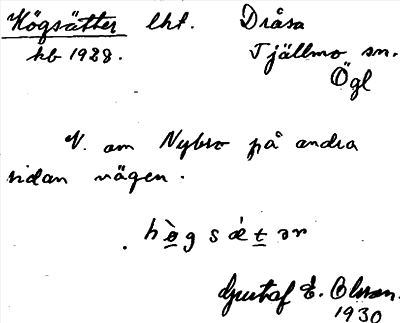 Högsätter lht. Dråsa
kb 1928. Tjällmo sn.
Ögl
V. om Nybro på andra
sidan vägen.
Gustaf E. Olsson.
1930